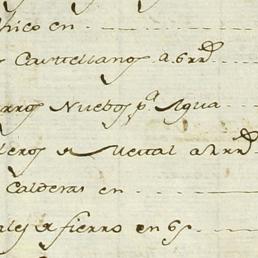 hico en
Castellanos a 6 rr.d
rros Nuebos p.a Agua
leros de Mettal a 2 rr.d
Calderas en
ales de fierro en 6 ps